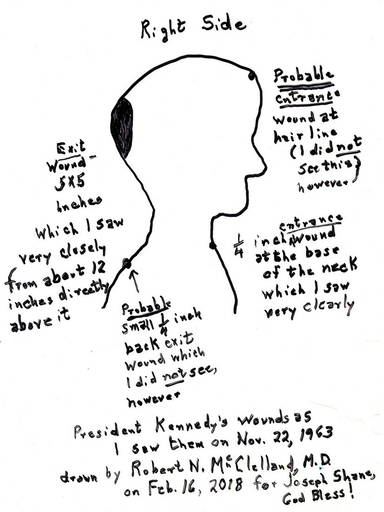 Right Side
Probable
entrance
wound at
hair line
(I did not
see this)
however
Exit
Wound -
5X5
inches
which I saw
very closely
from about 12
inches directly
above it
entrance
1/4 inch wound
at the base
of the neck
which I saw
very clearly
Probable
small 1/4 inch
back exit
wound which
I did not see,
however
President Kennedy's Wounds as
I saw them on Nov. 22, 1963
drawn by Robert N. McClelland, M.D.
on Feb. 16, 2018 for Joseph Shane,
God Bless!